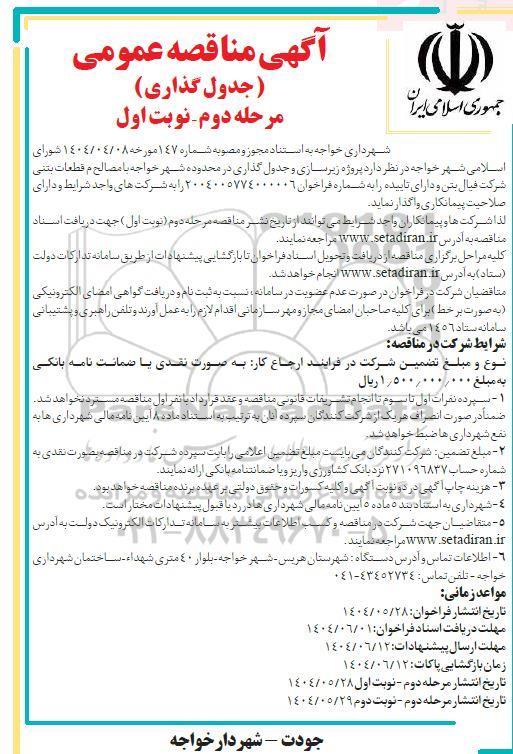 آگهی مناقصه عمومی
(جدول گذاری)
مرحله دوم-نوبت اول
جمهوری اسلامی ایران
شهرداری خواجه به استناد مجوز و مصوبه شماره ۱۴۷ مورخه ۱۴۰۴/۰۴/۰۸ شورای
اسلامی شهر خواجه در نظر دارد پروژه زیرسازی و جدول گذاری در محدوده شهر خواجه با مصالح م قطعات بتنی
شرکت فیال بتن و دارای تاییده را به شماره فراخوان ۲۰۰۴۰۰۵۷۷۴۰۰۰۰۰۶ را به شرکت های واجد شرایط و دارای
صلاحیت پیمانکاری واگذار نماید.
لذا شرکت ها و پیمانکاران واجد شرایط می توانند از تاریخ نشر مناقصه مرحله دوم (نوبت اول) جهت دریافت اسناد
مناقصه به آدرس www.setadiran.ir مراجعه نمایند.
کلیه مراحل برگزاری مناقصه از دریافت و تحویل اسناد فراخوان تا بازگشایی پیشنهادات از طریق سامانه تدارکات دولت
(ستاد) به آدرس www.setadiran.ir انجام خواهد شد.
متقاضیان شرکت در فراخوان در صورت عدم عضویت در سامانه، نسبت به ثبت نام و دریافت گواهی امضای الکترونیکی
(به صورت بر خط) برای کلیه صاحبان امضای مجاز و مهر سازمانی اقدام لازم را به عمل آورند و تلفن راهبری و پشتیبانی
سامانه ستاد ۱۴۵۶ می باشد.
شرایط شرکت در مناقصه:
نوع و مبلغ تضمین شرکت در فرایند ارجاع کار: به صورت نقدی یا ضمانت نامه بانکی
به مبلغ ۱/۵۰۰/۰۰۰/۰۰۰ ریال
۱- سپرده نفرات اول تا سوم تا انجام تشریفات قانونی مناقصه و عقد قرارداد با نفر اول مناقصه مسترد نخواهد شد.
ضمناً در صورت انصراف هر یک از شرکت کنندگان سپرده آنان به ترتیب به استناد ماده ۸ آیین نامه مالی شهرداری ها به
نفع شهرداری ها ضبط خواهد شد.
۲- مبلغ تضمین: شرکت کنندگان می بایست مبلغ تضمین اعلامی را بابت سپرده شرکت در مناقصه بصورت نقدی به
شماره حساب ۲۷۱۰۹۶۸۳۷ نزد بانک کشاورزی واریز و یا ضمانتنامه بانکی ارائه نمایند.
۳- هزینه چاپ آگهی در دو نوبت آگهی و کلیه کسورات و حقوق دولتی بر عهده برنده مناقصه خواهد بود.
۴- شهرداری به استناد بند ۵ ماده ۵ آیین نامه مالی شهرداری ها در رد یا قبول پیشنهادات مختار است.
۵- متقاضیان جهت شرکت در مناقصه و کسب اطلاعات بیشتر به سامانه تدارکات الکترونیک دولت به آدرس
www.setadiran.ir مراجعه نمایند.
۶- اطلاعات تماس و آدرس دستگاه: شهرستان هریس-شهر خواجه-بلوار ۴۰ متری شهداء-ساختمان شهرداری
خواجه - تلفن تماس: ۰۴۱-۴۳۴۵۲۷۳۴
مواعد زمانی:
تاریخ انتشار فراخوان: ۱۴۰۴/۰۵/۲۸
مهلت دریافت اسناد فراخوان: ۱۴۰۴/۰۶/۰۱
مهلت ارسال پیشنهادات: ۱۴۰۴/۰۶/۱۲
زمان بازگشایی پاکات: ۱۴۰۴/۰۶/۱۲
تاریخ انتشار مرحله دوم - نوبت اول ۱۴۰۴/۰۵/۲۸
تاریخ انتشار مرحله دوم - نوبت دوم ۱۴۰۴/۰۵/۲۹
جودت – شهردار خواجه